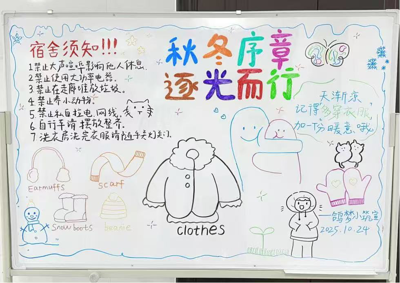 宿舍须知!!!
1.禁止大声喧哗影响他人休息.
2.禁止使用大功率电器.
3.禁止在走廊堆放垃圾.
4.禁止养小动物.
5.禁止私自拉电、网线.
6.自行车请摆放整齐.
7.洗衣房洗完衣服请随手关灯关门.
秋冬序章
逐光而行
天渐凉
记得多穿衣服,
加一份暖意哦
Earmuffs
scarf
clothes
Snow boots
beanie
筑梦小筑宣
2025.10.24